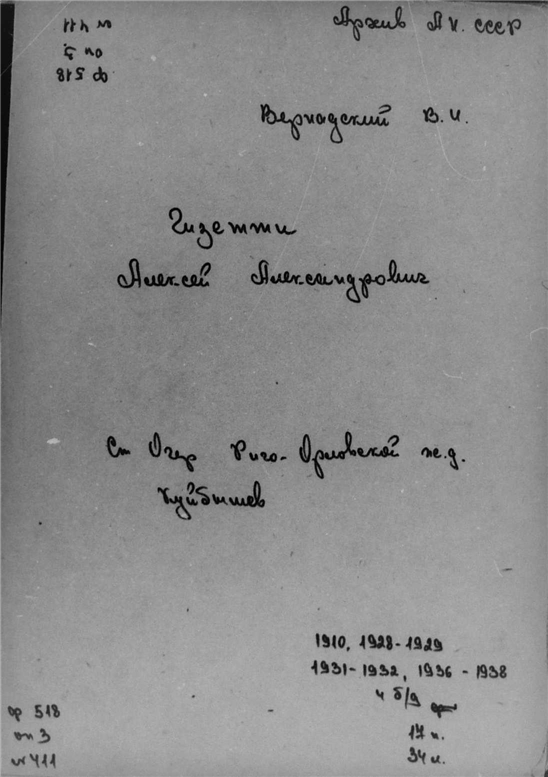 Архив АН. СССР
ф 518
оп 3
№ 411
Вернадский В. И.
Гизетти
Алексей Александрович
Ст Огер Риго-Орловской ж.д.
Куйбышев
1910, 1928-1929
1931-1932, 1936-1938
и б/д
17 п.
34 л.
ф 518
оп 3
№ 411